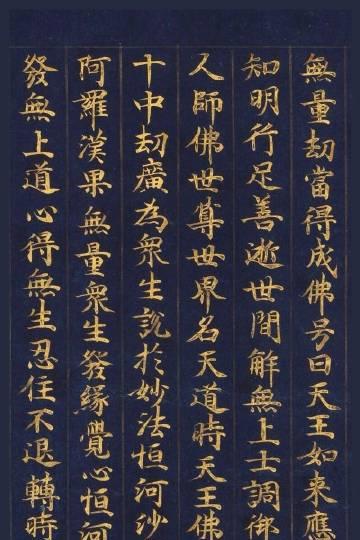 無量劫當得成佛号曰天王如来應
知明行足善逝世間解無上士調御
人師佛世尊世界名天道時天王佛
十中劫廣為衆生說於妙法恒河沙
阿羅漢果無量衆生發緣覺心恒河
發無上道心得無生忍住不退轉時